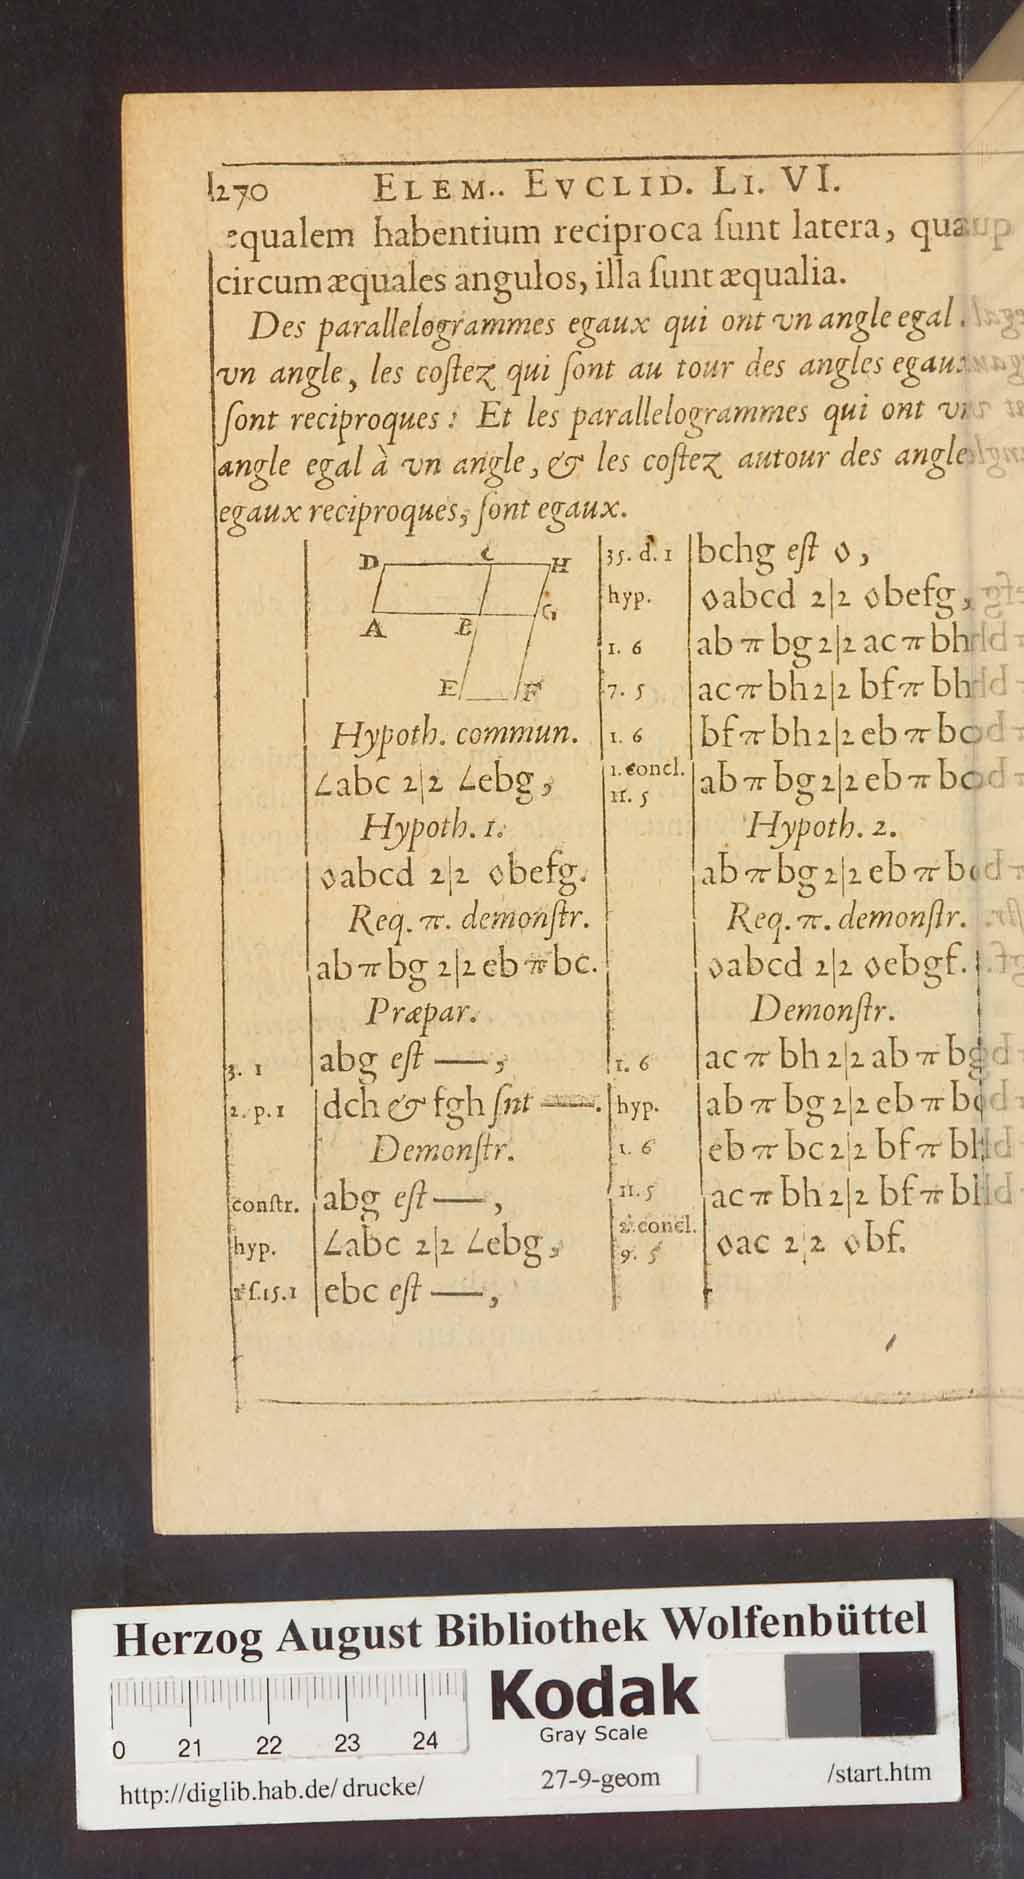 270 ELEM.. EVCLID. LI. VI.
equalem habentium reciproca ſunt latera, quæ
circum æquales angulos, illa ſunt æqualia.
Des parallelogrammes egaux qui ont vn angle egal
vn angle, les coſtez qui ſont au tour des angles egaux
ſont reciproques: Et les parallelogrammes qui ont vn
angle egal à vn angle, & les coſtez autour des angle
egaux reciproques, ſont egaux.
D C H
A B G
E F
Hypoth. commun.
∠abc 2|2 ∠ebg,
Hypoth. 1.
◊abcd 2|2 ◊befg.
Req. π. demonſtr.
ab π bg 2|2 eb π bc.
Præpar.
3. 1 abg eſt —,
2. p. 1 dch & fgh ſnt —.
Demonſtr.
conſtr. abg eſt —,
hyp. ∠abc 2|2 ∠ebg,
ſ. 15. 1 ebc eſt —,
35. d. 1 bchg eſt ◊,
hyp. ◊abcd 2|2 ◊befg,
1. 6 ab π bg 2|2 ac π bh
7. 5 ac π bh 2|2 bf π bh
1. 6 bf π bh 2|2 eb π bc
1. concl.
11. 5 ab π bg 2|2 eb π bc
Hypoth. 2.
ab π bg 2|2 eb π bc
Req. π. demonſtr.
◊abcd 2|2 ◊ebgf.
Demonſtr.
1. 6 ac π bh 2|2 ab π bg
hyp. ab π bg 2|2 eb π bc
1. 6 eb π bc 2|2 bf π bh
11. 5 ac π bh 2|2 bf π bh
2. concl.
9. 5 ◊ac 2|2 ◊bf.
Herzog August Bibliothek Wolfenbüttel
Kodak
Gray Scale
0 21 22 23 24
http://diglib.hab.de/drucke/ 27-9-geom /start.htm